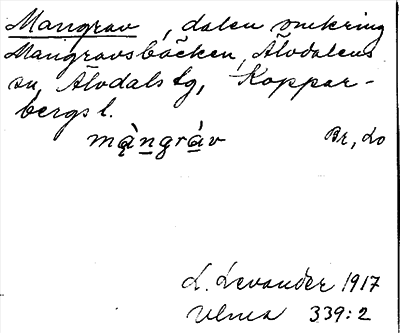 Mangrav, dalen omkring
Mangravsbäcken, Älvdalens
sn, Älvdals tg, Koppar-
bergs l.
mą̀ngráv Br, Lo
L. Levander 1917
Ulma 339:2